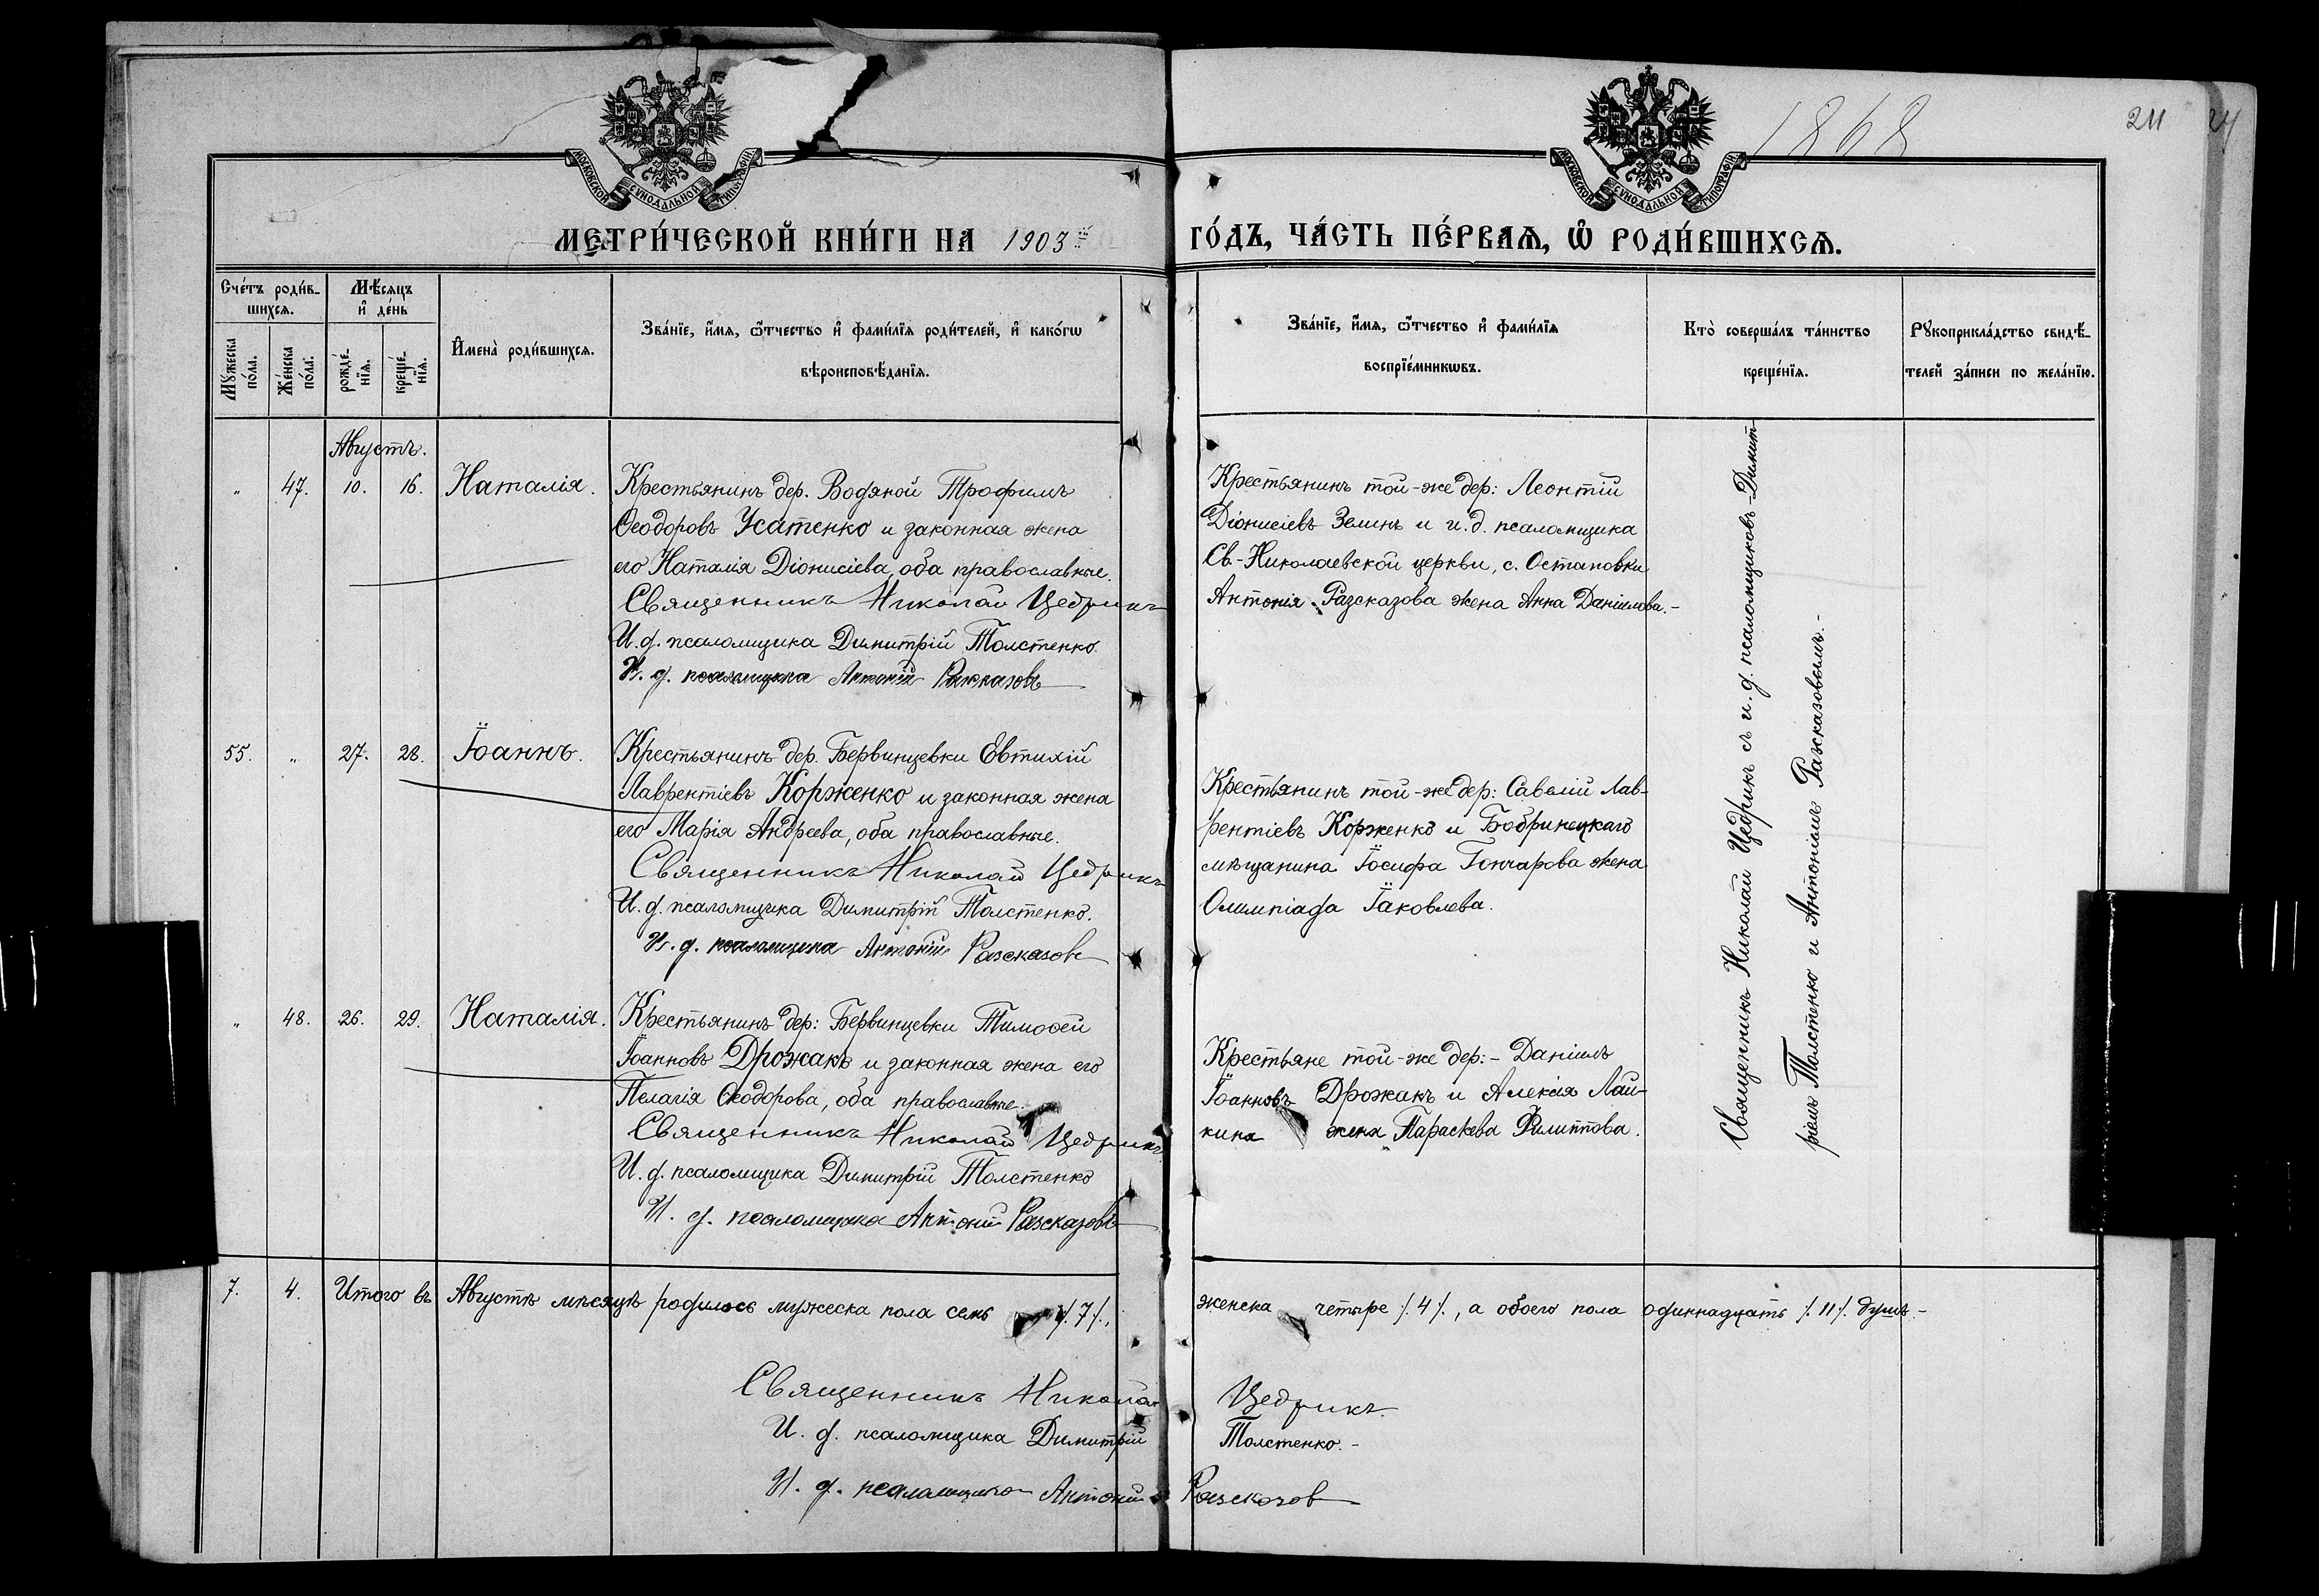 1868
211
МОСКОВСКОЙ СѴНОДАЛЬНОЙ ТИПОГРАФІИ
МОСКОВСКОЙ СѴНОДАЛЬНОЙ ТИПОГРАФІИ
МЕТРИ́ЧЕСКОЙ КНИ́ГИ НА 1903й ГО́ДЪ, ЧА́СТЬ ПЕ́РВАѦ, Ѡ҆ РОДИ́ВШИХСѦ.
Сче́тъ роди́в-
шихсѧ.
Мꙋ́жеска по́ла.
Же́нска по́ла.
Мѣ́сѧцъ
и҆ де́нь
рожде́-
нїѧ.
креще́-
нїѧ.
И҆мена̀ роди́вшихсѧ.
Зва́нїе, и҆́мѧ, ѻ҆́тчество и҆ фами́лїѧ роди́телей, и҆ како́гѡ
вѣроисповѣ́данїѧ.
Зва́нїе, и҆́мѧ, ѻ҆́тчество и҆ фами́лїѧ
воспрїе́мникѡвъ.
Кто̀ соверша́лъ та́инство
креще́нїѧ.
Рꙋкоприкла́дство свидѣ́-
телей за́писи по жела́нїю.
Августъ.
" 47. 10. 16. Наталія. Крестьянинъ дер. Водяной Трофимъ
Ѳеодоровъ Усатенко и законная жена
его Наталія Діонисіева, оба православные.
Священникъ Николай Цедрикъ
И. д. псаломщика Димитрій Толстенко.
И. д. псаломщика Антоній Разсказовъ
Крестьянинъ той-же дер: Леонтій
Діонисіевъ Зелинъ и и. д. псаломщика
Св.-Николаевской церкви, с. Остаповки
Антонія Разсказова жена Анна Даніилова.-
55. " 27. 28. Іоаннъ. Крестьянинъ дер. Бервинцевки Евтихій
Лаврентіевъ Корженко и законная жена
его Марія Андреева, оба православные.
Священникъ Николай Цедрикъ
И. д. псаломщика Димитрій Толстенко.
И. д. псаломщика Антоній Разсказовъ
Крестьянинъ той-же дер: Савелій Лав-
рентіевъ Корженко и Бобринецкаго
мѣщанина Іосифа Гончарова жена
Олимпіада Іаковлева.
" 48. 26. 29. Наталія. Крестьянинъ дер: Бервинцевки Тимоѳей
Іоанновъ Дрожакъ и законная жена его
Пелагія Ѳеодорова, оба православные.
Священникъ Николай Цедрикъ
И. д. псаломщика Димитрій Толстенко
И. д. псаломщика Антоній Разсказовъ
Крестьяне той-же дер:- Даніилъ
Іоанновъ Дрожакъ и Алексія Лай-
кина жена Параскева Филиппова.
Священникъ Николай Цедрикъ съ и. д. псаломщиковъ Димит-
ріемъ Толстенко и Антоніемъ Разсказовымъ.-
7. 4. Итого въ Августѣ мѣсяцѣ родилось мужеска пола семь /.7/., женска четыре /.4/., а обоего пола одиннадцать /.11/. душъ.-
Священникъ Николай Цедрикъ.
И. д. псаломщика Димитрій Толстенко.-
И. д. псаломщика Антоній Разсказовъ